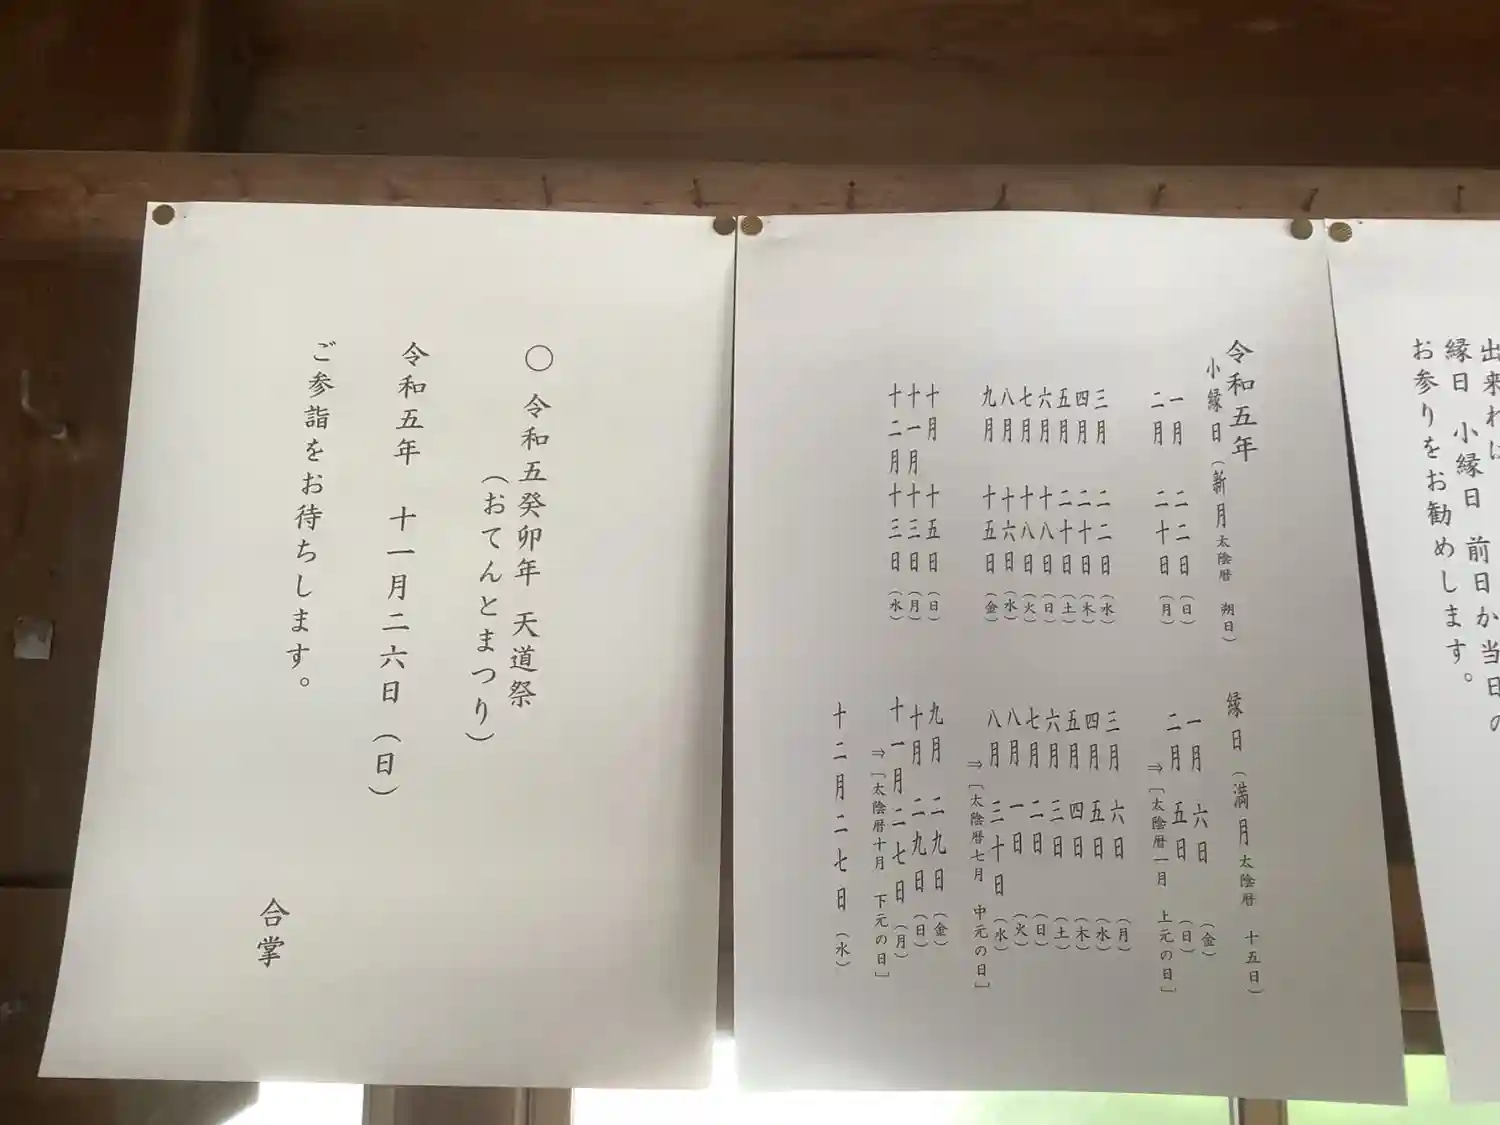 出来れば
縁日 小縁日 前日か当日の
お参りをお勧めします。
令和五年
小縁日（新月太陰暦 朔日）
一月 二二日（日）
二月 二十日（月）
三月 二二日（水）
四月 二十日（木）
五月 二十日（土）
六月 十八日（日）
七月 十八日（火）
八月 十六日（水）
九月 十五日（金）
十月 十五日（日）
十一月 十三日（月）
十二月 十三日（水）
縁日（満月太陰暦 十五日）
一月 六日（金）
二月 五日（日）
⇒［太陰暦一月 上元の日］
三月 六日（月）
四月 五日（水）
五月 四日（木）
六月 三日（土）
七月 二日（日）
八月 一日（火）
八月 三十日（水）
⇒［太陰暦七月 中元の日］
九月 二九日（金）
十月 二九日（日）
十一月二七日（月）
⇒［太陰暦十月 下元の日］
十二月二七日（水）
〇 令和五癸卯年 天道祭
（おてんとまつり）
令和五年 十一月二六日（日）
ご参詣をお待ちします。
合掌